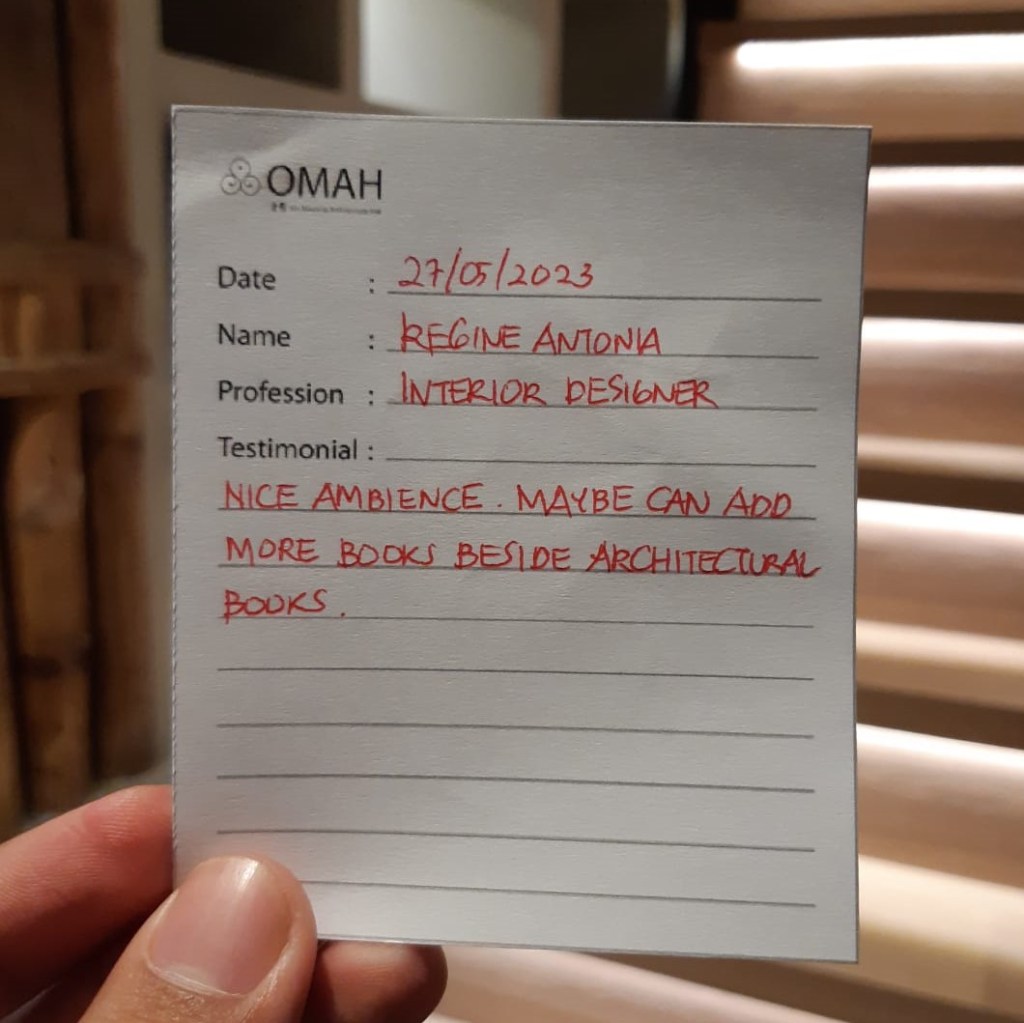 OMAH
Date : 27/05/2023
Name : REGINE ANTONIA
Profession : INTERIOR DESIGNER
Testimonial :
NICE AMBIENCE. MAYBE CAN ADD
MORE BOOKS BESIDE ARCHITECTURAL
BOOKS.